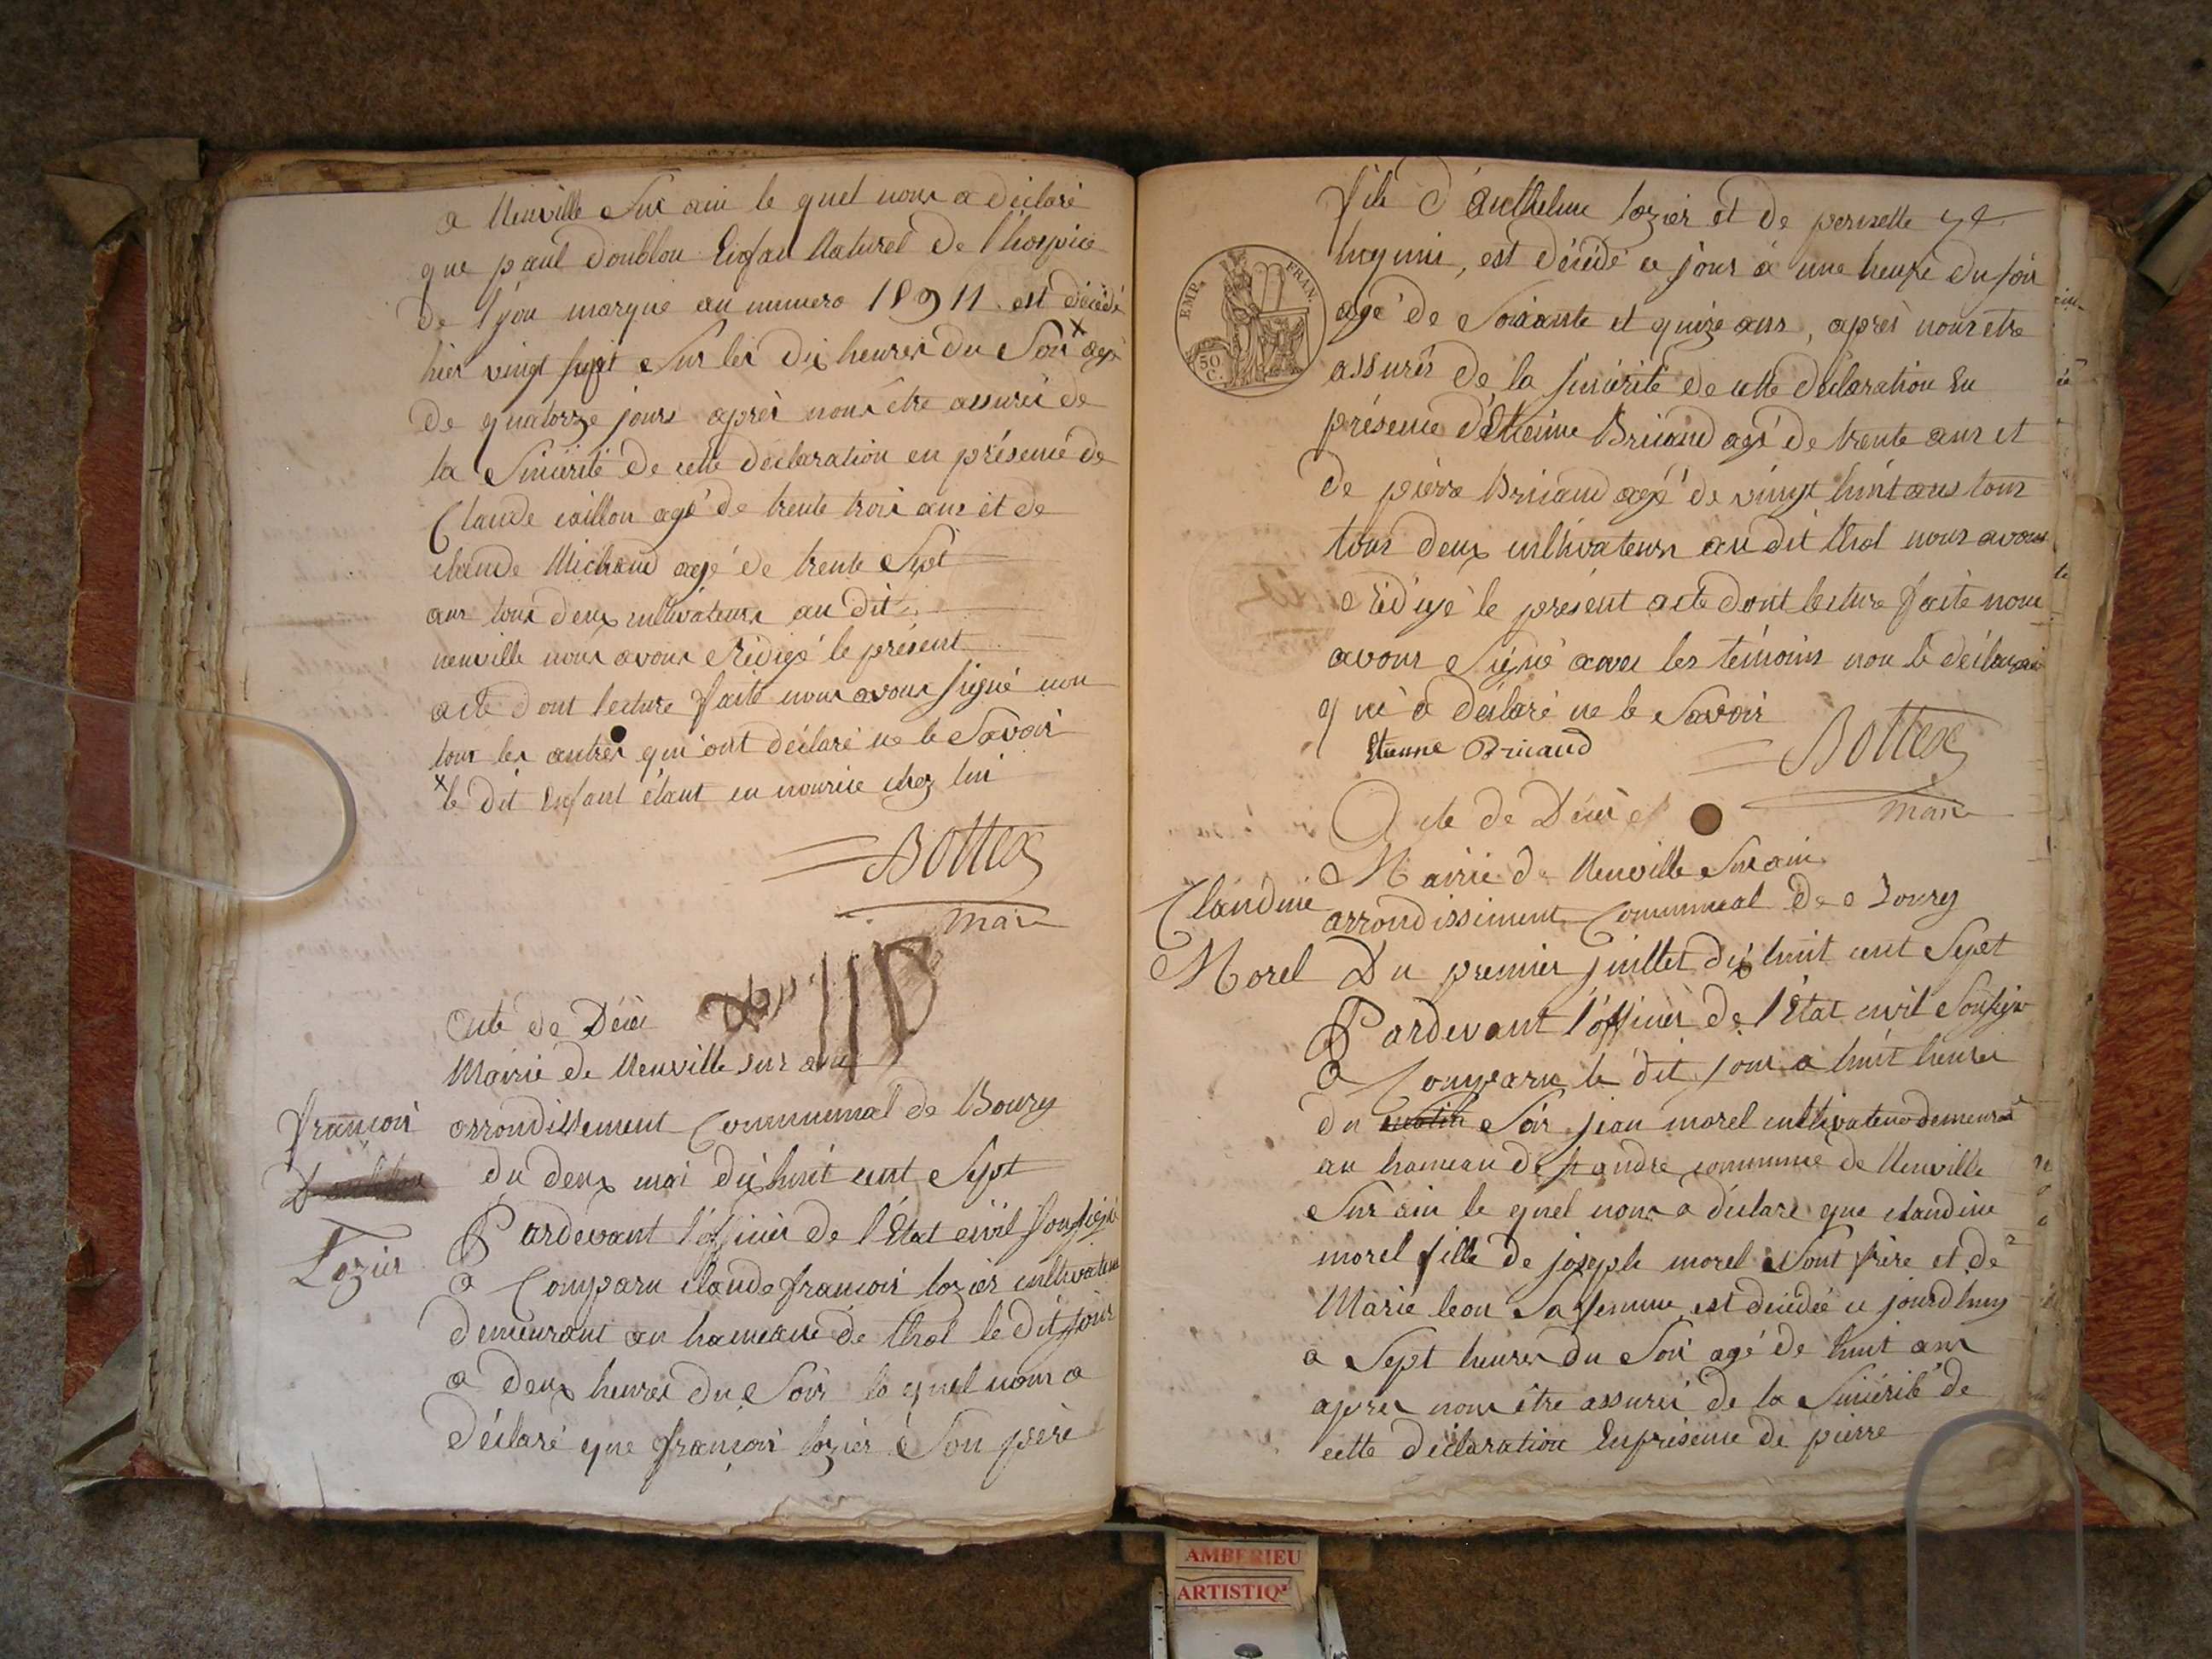 a Neuville Sur ain le quel nous a déclaré
que paul doublou Enfan Naturel de l'hospice
de lyon marqué au numero 18911 est décédé
hier vingt sept Sur les dix heures du Soir x agé
de quatorze jours après nous être assurés de
la Sincérité de cette déclaration en présence de
Claude caillon agé de trente trois ans et de
claude Michaud agé de trente Sept
ans tous deux cultivateurs au dit
neuville nous avons Rédigé le présent
acte dont lecture faite nous avons signé non
tous les autres qui ont déclaré ne le Savoir
x le dit Enfant étant en nourice chez lui
Bottex
Maire
Acte de Décès
Mairie de Neuville sur ain
françois
arrondissement Communal de Bourg
du deux mai dix huit cent Sept
Lozier
Pardevant l'officier de l'Etat civil Soussigné
a Comparu claude françois lozier cultivateur
demeurant au hameaue de thol le dit jour
a deux heures du Soir le quel nous a
déclaré que françois lozier Son père
fils d'Anthelme lozier et de pernette
hugonis, est décédé ce jour à une heure du soir
EMP. FRAN.
50 C.
agé de Soixante et quize ans, après nous etre
assurés de la sincérité de cette déclaration En
présence d'Etienne Briiand agé de trente ans et
de pierre Briiand agé de vingt huit ans tous
tous deux cultivateurs au dit thol nous avons
Rédigé le présent acte dont lecture faite nous
avons Signé avec les témoins non le déclarant
qui a déclaré ne le Savoir
Etienne Briiand
Bottex
Maire
Acte de Décès
Mairie de Neuville Sur ain
Claudine
arrondissement Communal de Bourg
Morel
Du premier juillet dix huit cent Sept
Pardevant l'officier de l'Etat civil Soussigné
a Comparu le dit jour a huit heures
du matin Soir jean morel cultivateur demeurant
au hameau de st andré commune de Neuville
Sur ain le quel nous a déclaré que claudine
morel fille de joseph morel Sont frère et de
Marie leon Sa femme est décédée ce jourdhuy
a Sept heures du Soir agé de huit ans
apres nous être assurés de la Sincérité de
cette déclaration En présence de pierre
AMBERIEU
ARTISTIQ